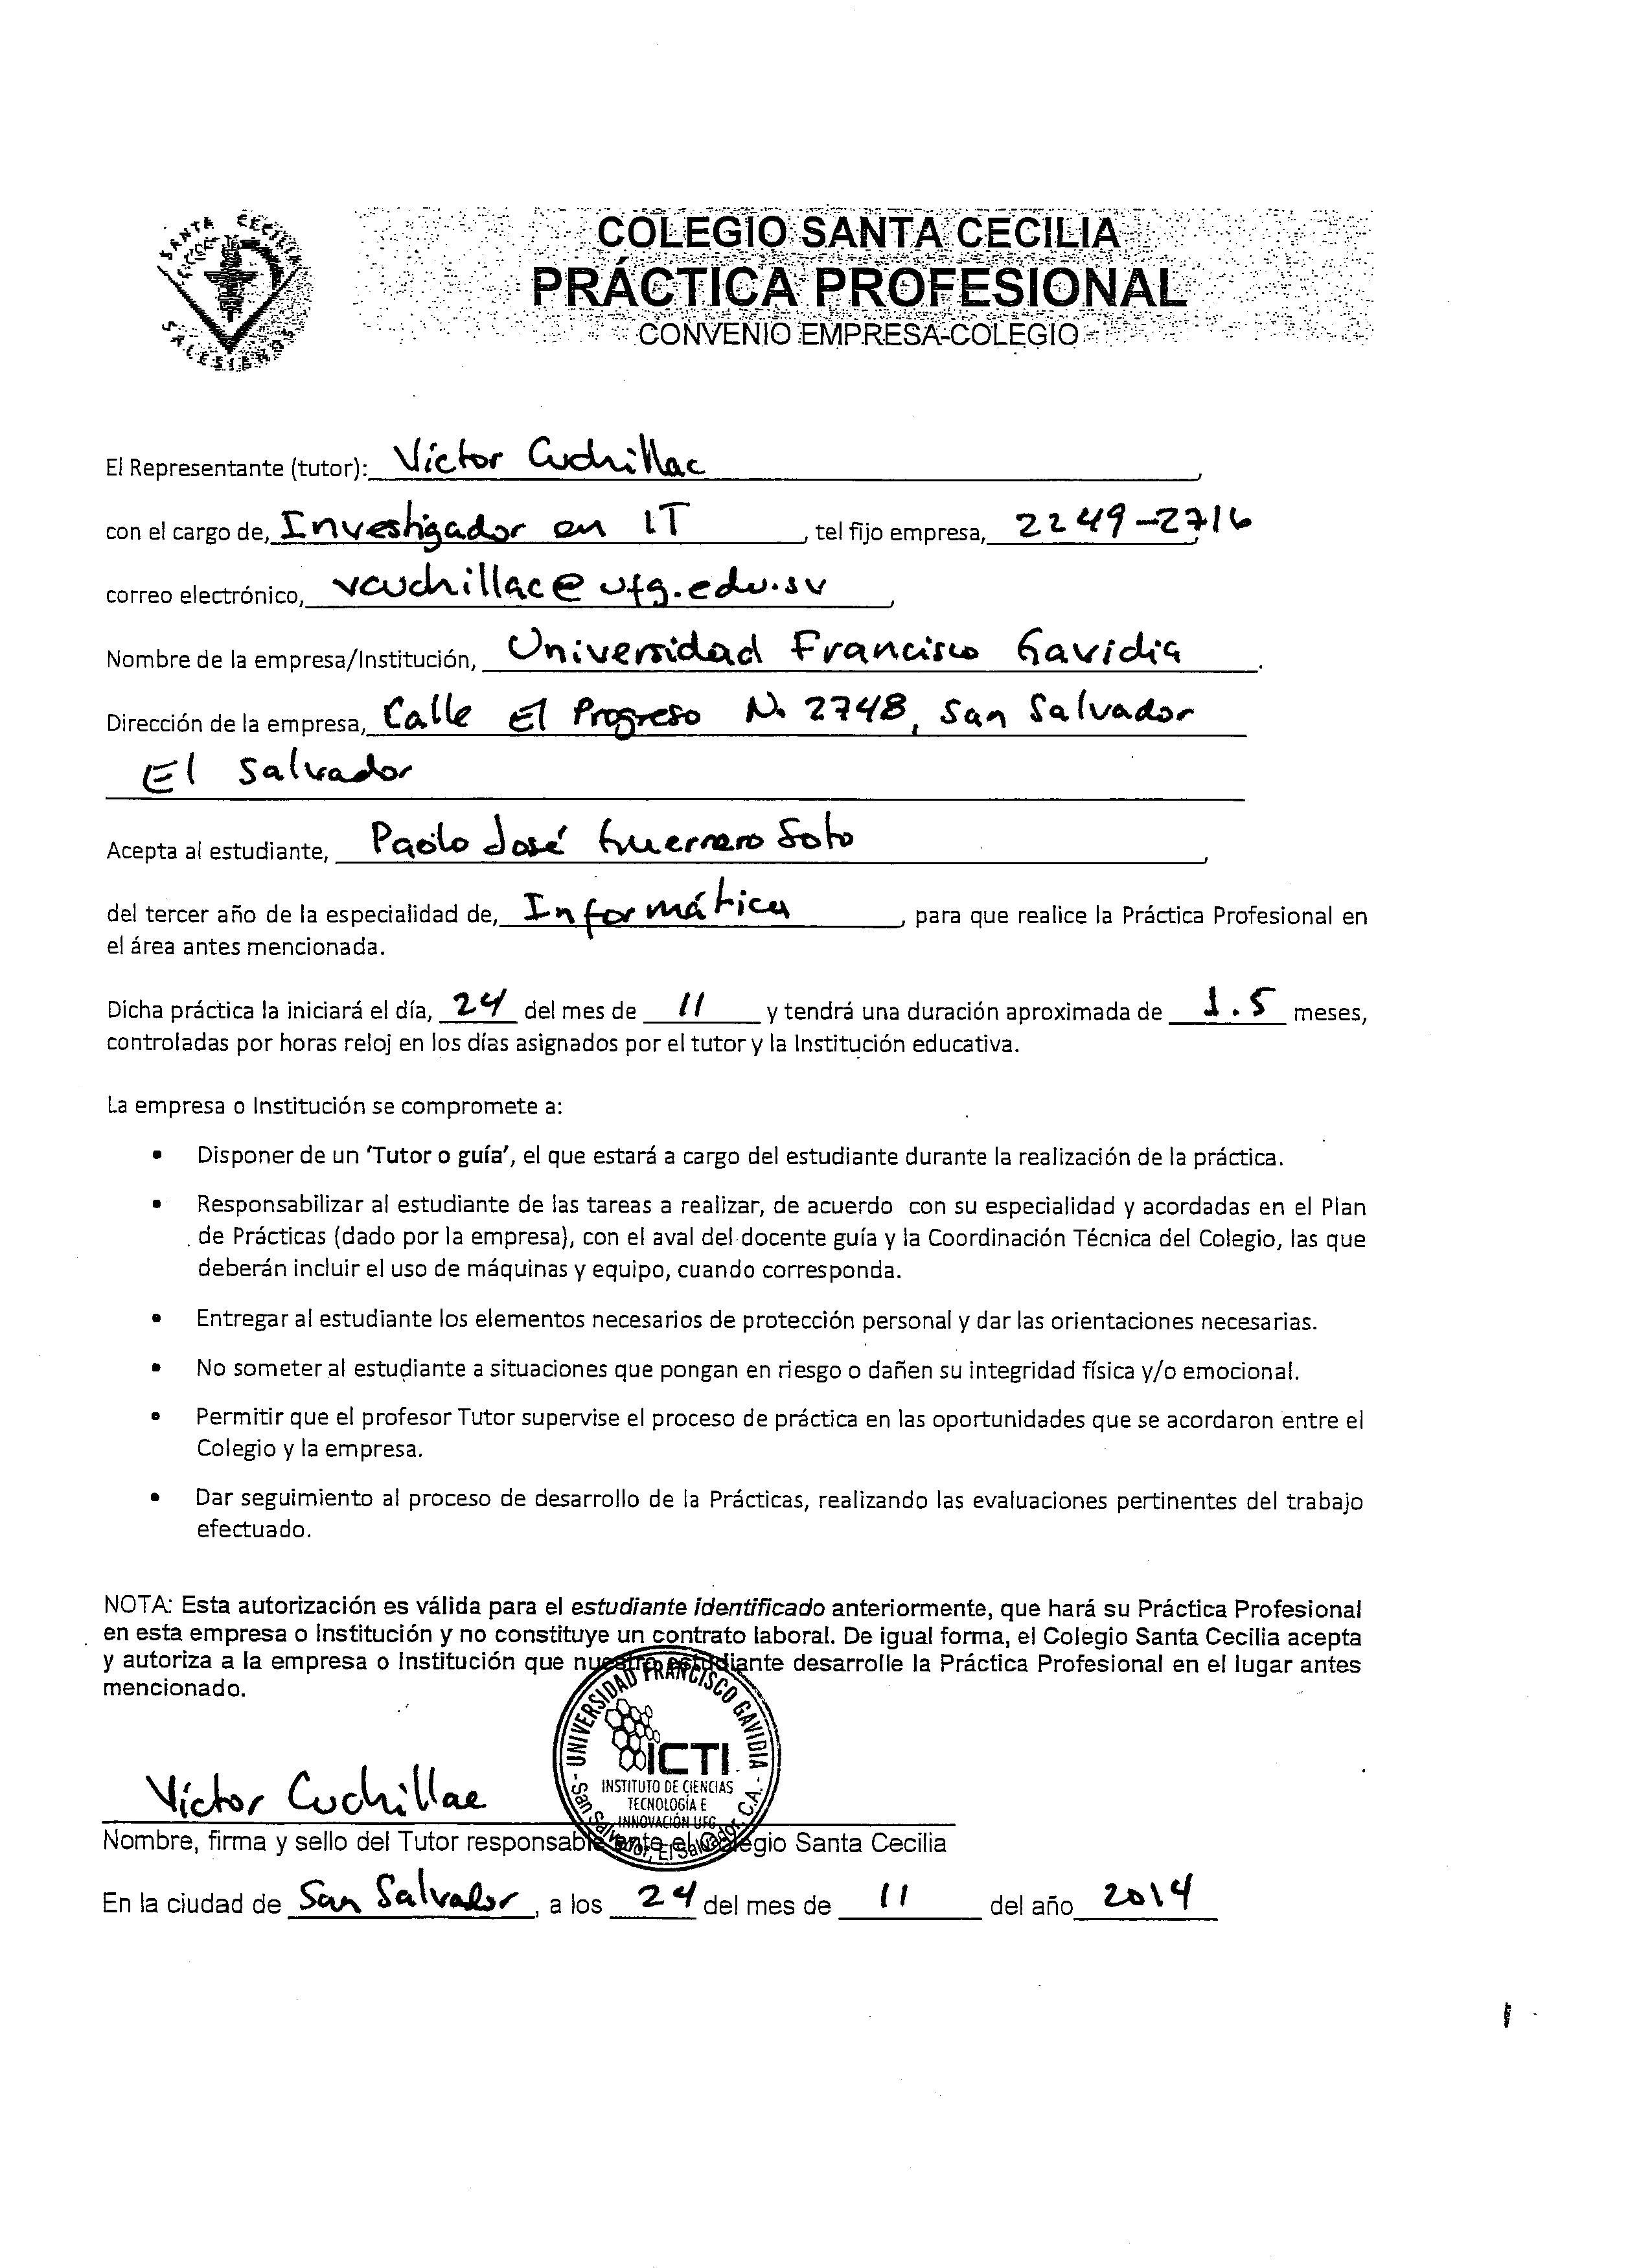 SANTA CECILIA
SALESIANOS
COLEGIO SANTA CECILIA
PRÁCTICA PROFESIONAL
CONVENIO EMPRESA-COLEGIO
El Representante (tutor): Víctor Cuchillac,
con el cargo de, Investigador en IT, tel fijo empresa, 2249-2716
correo electrónico, vcuchillac@ufg.edu.sv,
Nombre de la empresa/Institución, Universidad Francisco Gavidia.
Dirección de la empresa, Calle El Progreso No 2748, San Salvador
El Salvador
Acepta al estudiante, Paolo José Guerrero Soto,
del tercer año de la especialidad de, Informática, para que realice la Práctica Profesional en
el área antes mencionada.
Dicha práctica la iniciará el día, 24 del mes de 11 y tendrá una duración aproximada de 1.5 meses,
controladas por horas reloj en los días asignados por el tutor y la Institución educativa.
La empresa o Institución se compromete a:
• Disponer de un 'Tutor o guía', el que estará a cargo del estudiante durante la realización de la práctica.
• Responsabilizar al estudiante de las tareas a realizar, de acuerdo con su especialidad y acordadas en el Plan
de Prácticas (dado por la empresa), con el aval del docente guía y la Coordinación Técnica del Colegio, las que
deberán incluir el uso de máquinas y equipo, cuando corresponda.
• Entregar al estudiante los elementos necesarios de protección personal y dar las orientaciones necesarias.
• No someter al estudiante a situaciones que pongan en riesgo o dañen su integridad física y/o emocional.
• Permitir que el profesor Tutor supervise el proceso de práctica en las oportunidades que se acordaron entre el
Colegio y la empresa.
• Dar seguimiento al proceso de desarrollo de la Prácticas, realizando las evaluaciones pertinentes del trabajo
efectuado.
NOTA: Esta autorización es válida para el estudiante identificado anteriormente, que hará su Práctica Profesional
en esta empresa o Institución y no constituye un contrato laboral. De igual forma, el Colegio Santa Cecilia acepta
y autoriza a la empresa o Institución que nuestro estudiante desarrolle la Práctica Profesional en el lugar antes
mencionado.
UNIVERSIDAD FRANCISCO GAVIDIA
ICTI
INSTITUTO DE CIENCIAS
TECNOLOGÍA E
INNOVACIÓN UFG
- San Salvador, El Salvador, C.A. -
Víctor Cuchillac
Nombre, firma y sello del Tutor responsable ante el Colegio Santa Cecilia
En la ciudad de San Salvador, a los 24 del mes de 11 del año 2014